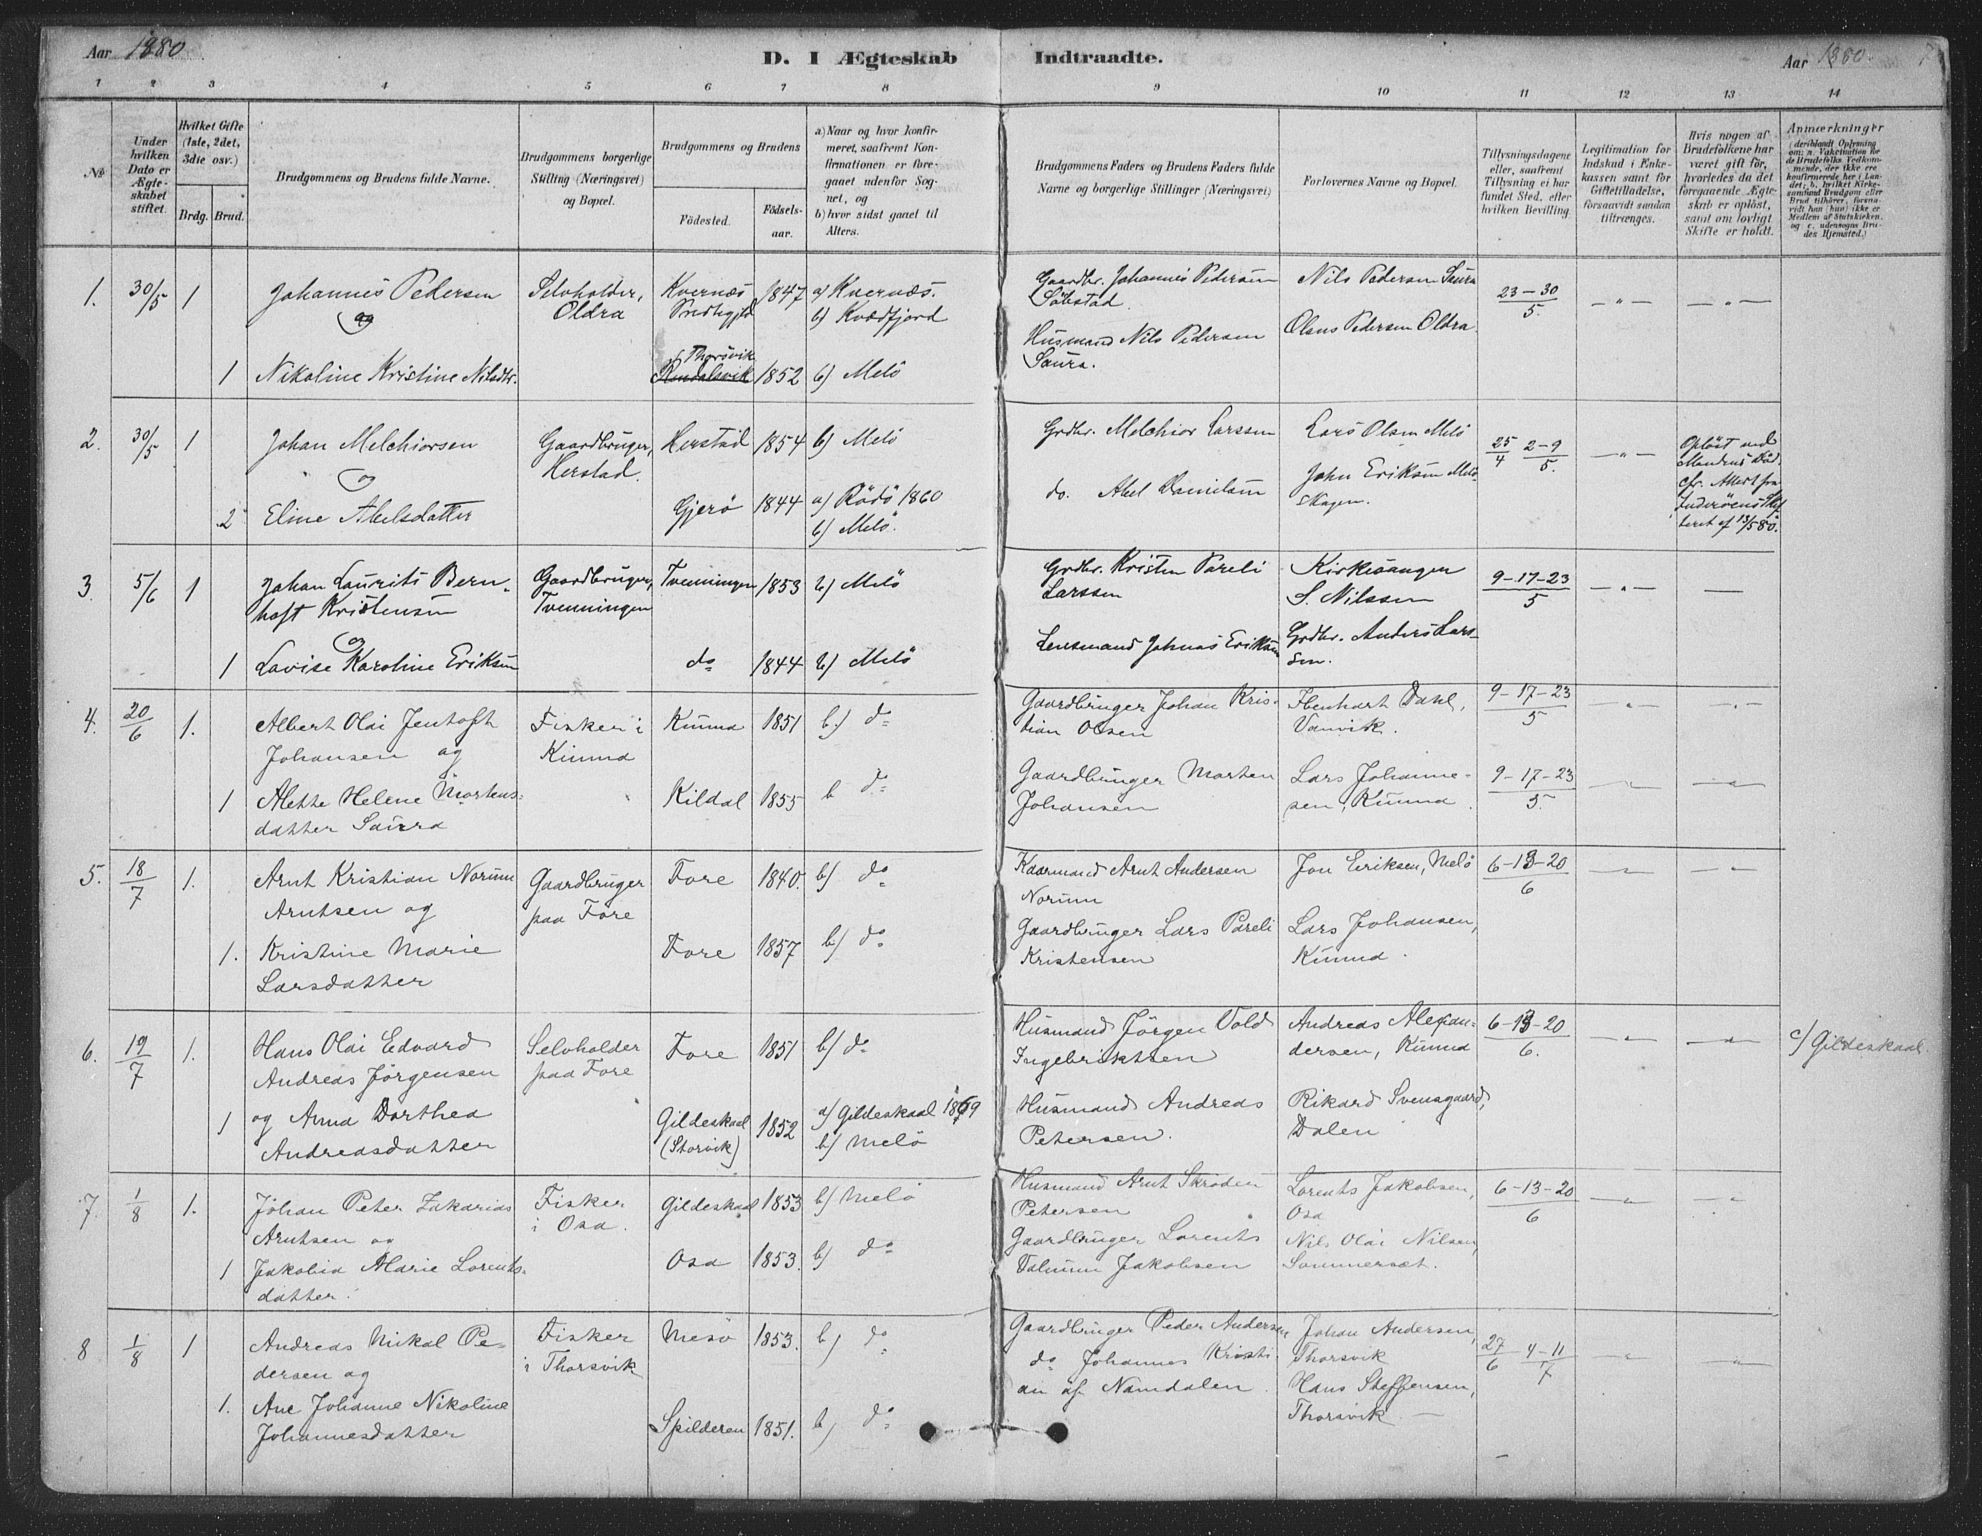 Aar 1880
D. I Ægteskab Indtraadte.
Aar 1880.
1 2 3 4 5 6 7 8 9 10 11 12 13 14
№
Under hvilken Dato er Ægteskabet stiftet.
Hvilket Gifte (1ste, 2det, 3die osv.)
Brdg. Brud.
Brudgommens og Brudens fulde Navne.
Brudgommens borgerlige Stilling (Næringsvei) og Bopæl.
Brudgommens og Brudens
Födested.
Födsels-aar.
a) Naar og hvor konfirmeret, saafremt Konfirmationen er foregaaet udenfor Sognet, og
b) hvor sidst gaaet til Alters.
Brudgommens Faders og Brudens Faders fulde Navne og borgerlige Stillinger (Næringsvei)
Forlovernes Navne og Bopæl.
Tillysningsdagene eller, saafremt Tillysning ei har fundet Sted, efter hvilken Bevilling.
Legitimation for Indskud i Enkekassen samt for Giftetilladelse, forsaavidt saadan tiltrænges.
Hvis nogen af Brudefolkene har været gift för, hvorledes da det foregaaende Ægteskab er oplöst, samt om lovligt Skifte er holdt.
Anmærkninger
1. 30/5 1 Johannes Pedersen Selvholder, Kvernæs 1847 a) Kvernæs. Gaardbr. Johannes Pedersen Nils Pedersen Saura 23-30/5 — „ — — „ —
og Oldra Prestegjeld b) Kvædfjord Söbstad. Olaus Pedersen Oldra
Thorsvik Husmand Nils Pedersen
1 Nikoline Kristine Nilsdtr. 1852 b) Melö Saura.
2. 30/5 1 Johan Melchiorsen Gaardbruger, Herstad 1854 b) Melö Grdbr. Melchior Larssen Lars Olsen Melö 25/4 2-9/5. — „ — Oplöst ved
og Herstad. John Eriksen Melö Mandens Död.
2 Eline Abelsdatter Gjerö 1844 a) Rödö 1860 do. Abel Danielsen Skagen. cfr. Attest fra
b) Melö. Inderöens Skif-
teret af 13/5 80.
3. 5/6 1 Johan Laurits Bern- Gaardbruger, Tvenningen 1853 b) Melö Grdbr. Kristen Pareli Kirkesanger 9-17-23/5 — „ — —
hoft Kristensen Tvenningen Larssen S. Nilssen
og
1 Lovise Karoline Eriksen do 1844 b) Melö Lensmand Johnas Eriksen Grdbr. Anders Lars-
sen.
4. 20/6 1. Albert Olai Jentoft Fisker i Kunna 1851 b.) do Gaardbruger Johan Kris- Ibenhart Dahl, 9-17-23/5 — „ — — „ —
Johansen og Kunna tian Olsen Vanvik.
1 Alette Helene Mortens- Kildal 1855 b do Gaardbruger Morten Lars Johanne- 9-17-23/5. — „ — — „ —
datter Saura Johansen sen, Kunna.
5. 18/7 1. Arnt Kristian Norum Gaardbruger Fore 1840. b) do Kaarmand Arnt Andersen Jon Eriksen, Melö 6-13-20/6 — „ — — „ —
Arntsen og paa Fore Norum
1. Kristine Marie Fore 1857 b) do Gaardbruger Lars Pareli Lars Johansen,
Larsdatter Kristensen Kunna.
6. 19/7 1. Hans Olai Edvard Selvholder Fore 1851 b) do Husmand Jörgen Vold Andreas Alexan- 6-13-20/6. — „ — — „ — c) Gildeskaal.
Andreas Jörgensen paa Fore Ingebriktsen dersen, Kunna
1 og Anna Dorthea Gildeskaal 1852 a) Gildeskaal 1869 Husmand Andreas Rikard Svensgaard,
Andreasdatter (Storvik) b) Melö Petersen. Dalen
7. 1/8 1. Johan Peter Zakarias Fisker Gildeskaal 1853 b) Melö Husmand Arnt Skroden Lorents Jakobsen, 6-13-20/6 — „ — „
Arntsen og i Osa. Petersen Osa
1 Jakobia Marie Lorents- Osa 1853. b) do Gaardbruger Lorents Nils Olai Nilsen,
datter. Valnum Jakobsen Sommersæt.
8 1/8 1 Andreas Mikal Pe- Fisker Mesö 1853. b) do Gaardbruger Peder Andersen Johan Andersen, 27/6 4-11/7 — „ — — „ —
dersen og i Thorsvik do Johannes Kristi- Thorsvik
1. Ane Johanne Nikoline an af Namdalen. Hans Steffensen,
Johannesdatter Spilderen 1851. b) do Thorsvik. —